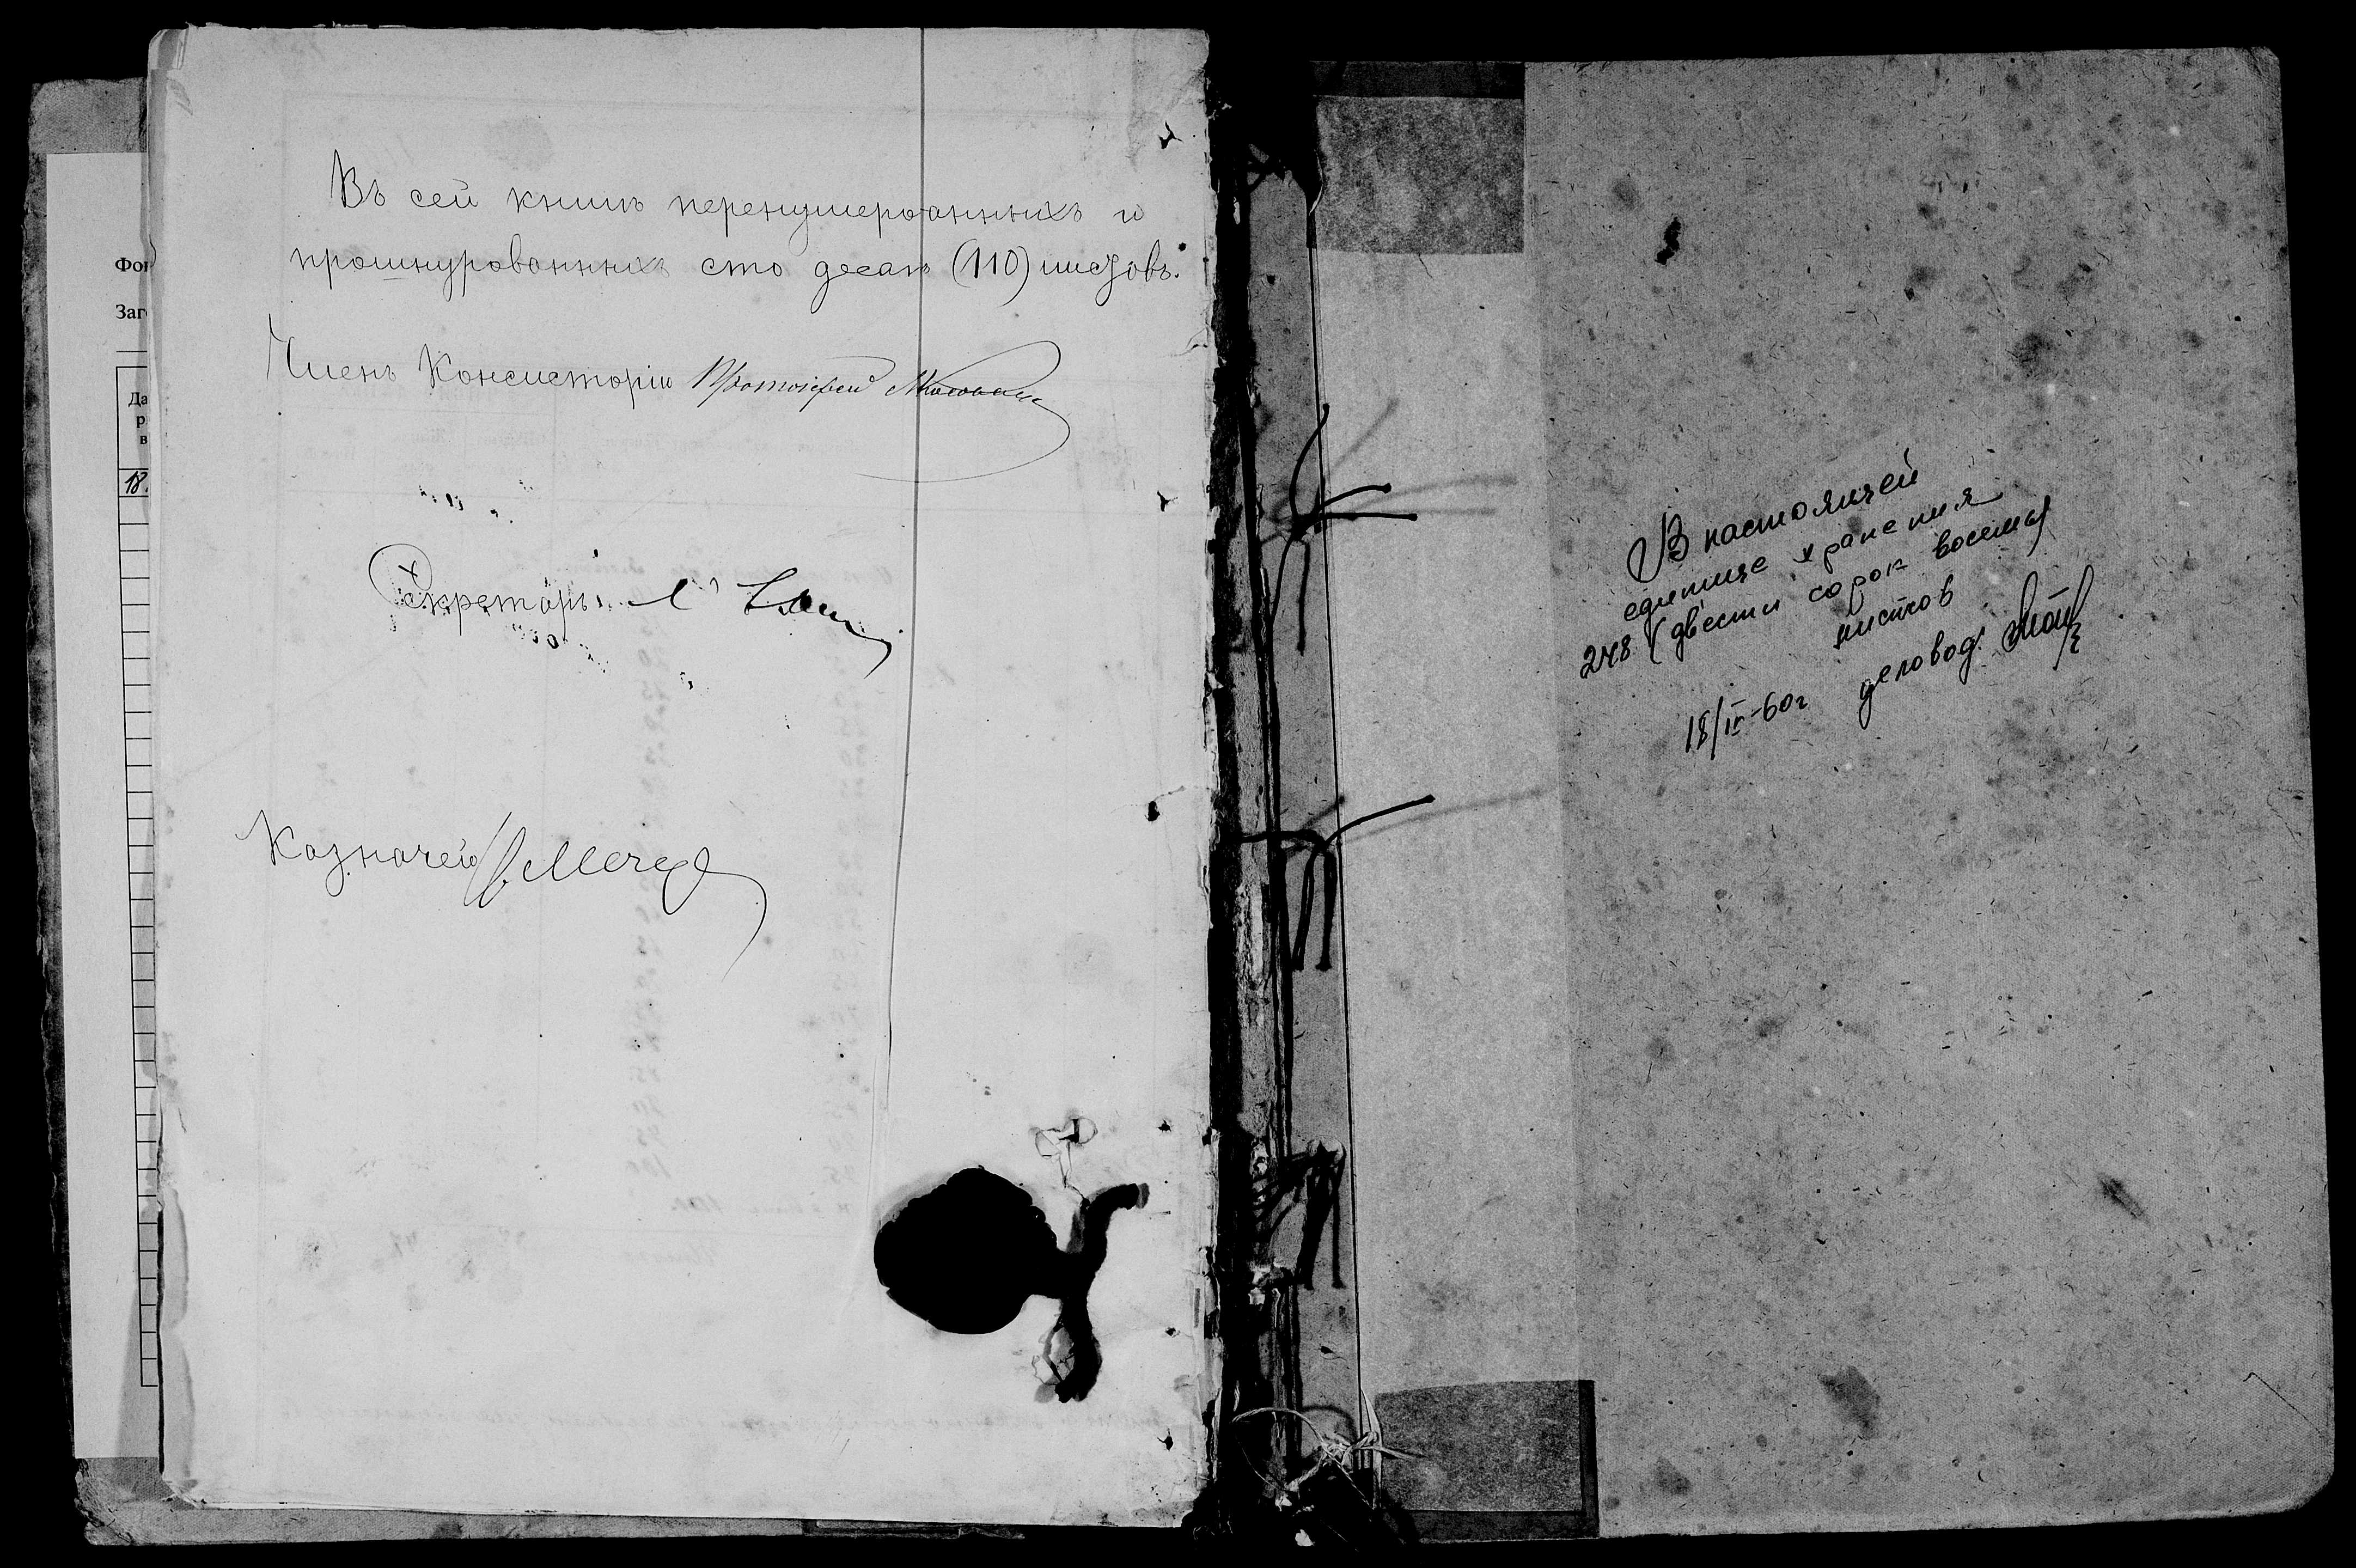 Въ сей книгѣ перенумерованныхъ и
прошнурованныхъ сто десять (110) листовъ.
Членъ Консисторіи Протоіерей
Секретарь
Казначей
Фон
Заго
Да
р
в
18.
В настоящей
единице хранения
248 (двести сорок восемь)
листов
18/IV-60г деловод.